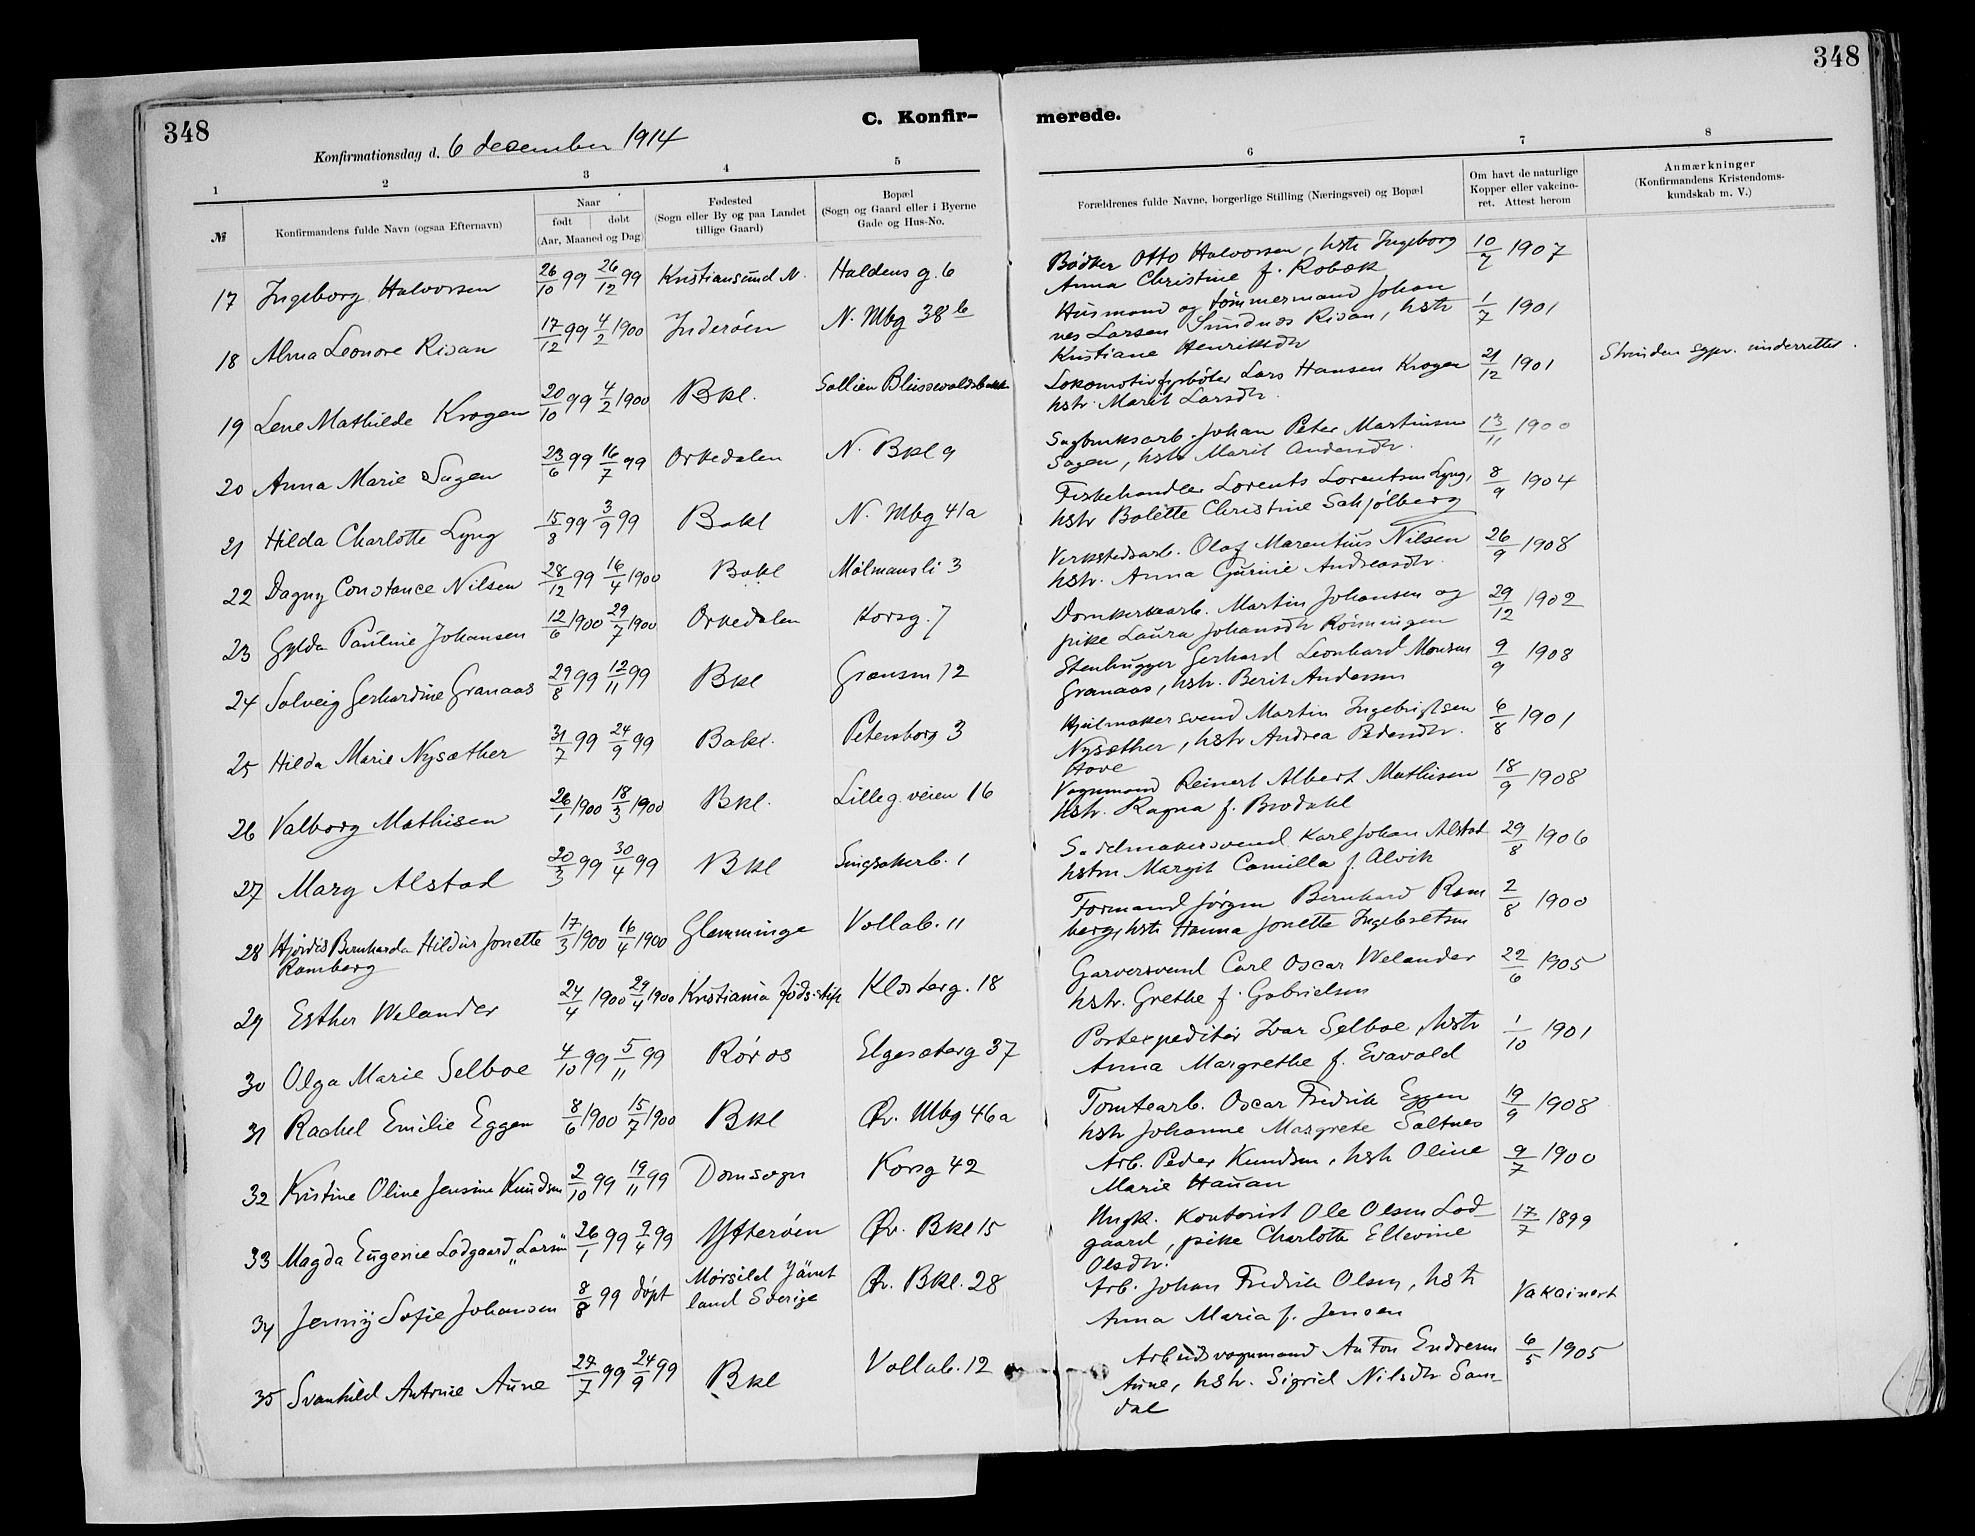 348
348
C. Konfir-
merede.
Konfirmationsdag d. 6 desember 1914
1 2 3 4 5 6 7 8
№
Konfirmandens fulde Navn (ogsaa Efternavn)
Naar
født døbt
(Aar, Maaned og Dag)
Fødested
(Sogn eller By og paa Landet
tillige Gaard)
Bopæl
(Sogn og Gaard eller i Byerne
Gade og Hus-No.
Forældrenes fulde Navne, borgerlige Stilling (Næringsvei) og Bopæl
Om havt de naturlige
Kopper eller vakcine-
ret. Attest herom
Anmærkninger
(Konfirmandens Kristendoms-
kundskab m. V.)
17 Ingeborg Halvorsen 26/10 99 26/12 99 Kristiansund N. Haldens g. 6
Bødker Otto Halvorsen, hstr Ingeborg 10/7 1907
Anna Christine f. Robæk
18 Alma Leonore Risan 17/12 99 4/2 1900 Inderøen N. Mbg 38 b
Husmand og tømmermand Johan 1/7 1901
nes Larsen Sundnæs Risan, hstr
Kristiane Henriksdr
19 Lene Mathilde Krogen 20/10 99 4/2 1900 Bkl. Sollien
Lokomotivfyrbøter Lars Hansen Krogen 21/12 1901 Strinden sgpr. underrettet.
hstr. Marit Larsdr.
20 Anna Marie Sagen 23/6 99 16/7 99 Orkedalen N. Bkl 9
Sagbruksarb. Johan Peter Martinsen 13/11 1900
Sagen, hstr Marit Andersdr.
21 Hilda Charlotte Lyng 15/8 99 3/9 99 Bakl N. Mbg 41a
Fiskehandler Lorents Lorentsen Lyng, 8/9 1904
hstr Bolette Christine Schjølberg
22 Dagny Constance Nilsen 28/12 99 16/4 1900 Bakl Målmansli 3
Verkstedsarb. Olaf Marentius Nilsen 26/9 1908
hstr. Anna Gurine Andreasdr.
23 Gylda Pauline Johansen 12/6 1900 29/7 1900 Orkedalen Korsg. 7
Domkirkearb. Martin Johansen og 29/12 1902
pike Laura Johansdr Rønningen
24 Solveig Gerhardine Granaas 29/8 99 12/11 99 Bkl Grænsen 12
Stenhugger Gerhard Leonhard Monsen 9/9 1908
Granaas, hstr. Berit Andersen
25 Hilda Marie Nysæther 31/7 99 24/9 99 Bakl. Petersborg 3
Hjulmakersvend Martin Ingebrigtsen 6/8 1901
Nysæther, hstr Andrea Pedersdr.
Hove
26 Valborg Mathisen 26/1 1900 18/3 1900 Bkl. Lilleg. veien 16
Vognmand Reinert Albert Mathisen 18/9 1908
hstr. Ragna f. Brodahl
27 Mary Alstad 20/3 99 30/4 99 Bkl Singsakerb. 1
Sadelmakersvend Karl Johan Alstad 29/8 1906
hstru Margit Camilla f. Alvik
28 Hjørdis Bernharda Hildur Jonette 17/3 1900 16/4 1900 Glemminge Vollab. 11
Ramberg
Formand Jørgen Bernhard Ram 2/8 1900
berg, hstr Hanna Jonette Ingebretsen
29 Esther Welander 24/4 1900 29/4 1900 Kristiania fødsstift Klosterg. 18
Garversvend Carl Oscar Welander 22/6 1905
hstr. Grethe f. Gabrielsen
30 Olga Marie Selboe 4/10 99 5/11 99 Røros Elgesæterg 37
Postexpeditør Ivar Selboe, hstr 1/10 1901
Anna Margrethe f. Evavold
31 Rachel Emilie Eggen 8/6 1900 15/7 1900 Bkl Øv. Mbg 46a
Tomtearb. Oscar Fredrik Eggen 19/9 1908
hstr Johanne Margrete Saltnes
32 Kristine Oline Jensine Knudsen 2/10 99 19/11 99 Domsogn Korsg 42
Arb. Peder Knudsen, hstr Oline 9/7 1900
Marie Hauan
33 Magda Eugenie Lodgaard „Larsen" 26/1 99 9/4 99 Ytterøen Øv. Bkl 15
Ungk. Kontorist Ole Olsen Lod- 17/7 1899
gaard, pike Charlotte Ellevine
Olsdr.
34 Jenny Sofie Johansen 8/8 99 døpt Mørsild Jämt Øv. Bkl. 28
land Sverige
Arb. Johan Fredrik Olsen, hstr Vakcinert
Anna Maria f. Jensen
35 Svanhild Antonie Aune 27/7 99 24/9 99 Bkl Vollab. 12
Arbeidsvognmand Anton Endresen 6/5 1905
Aune, hstr. Sigrid Nilsdr Sam-
dal